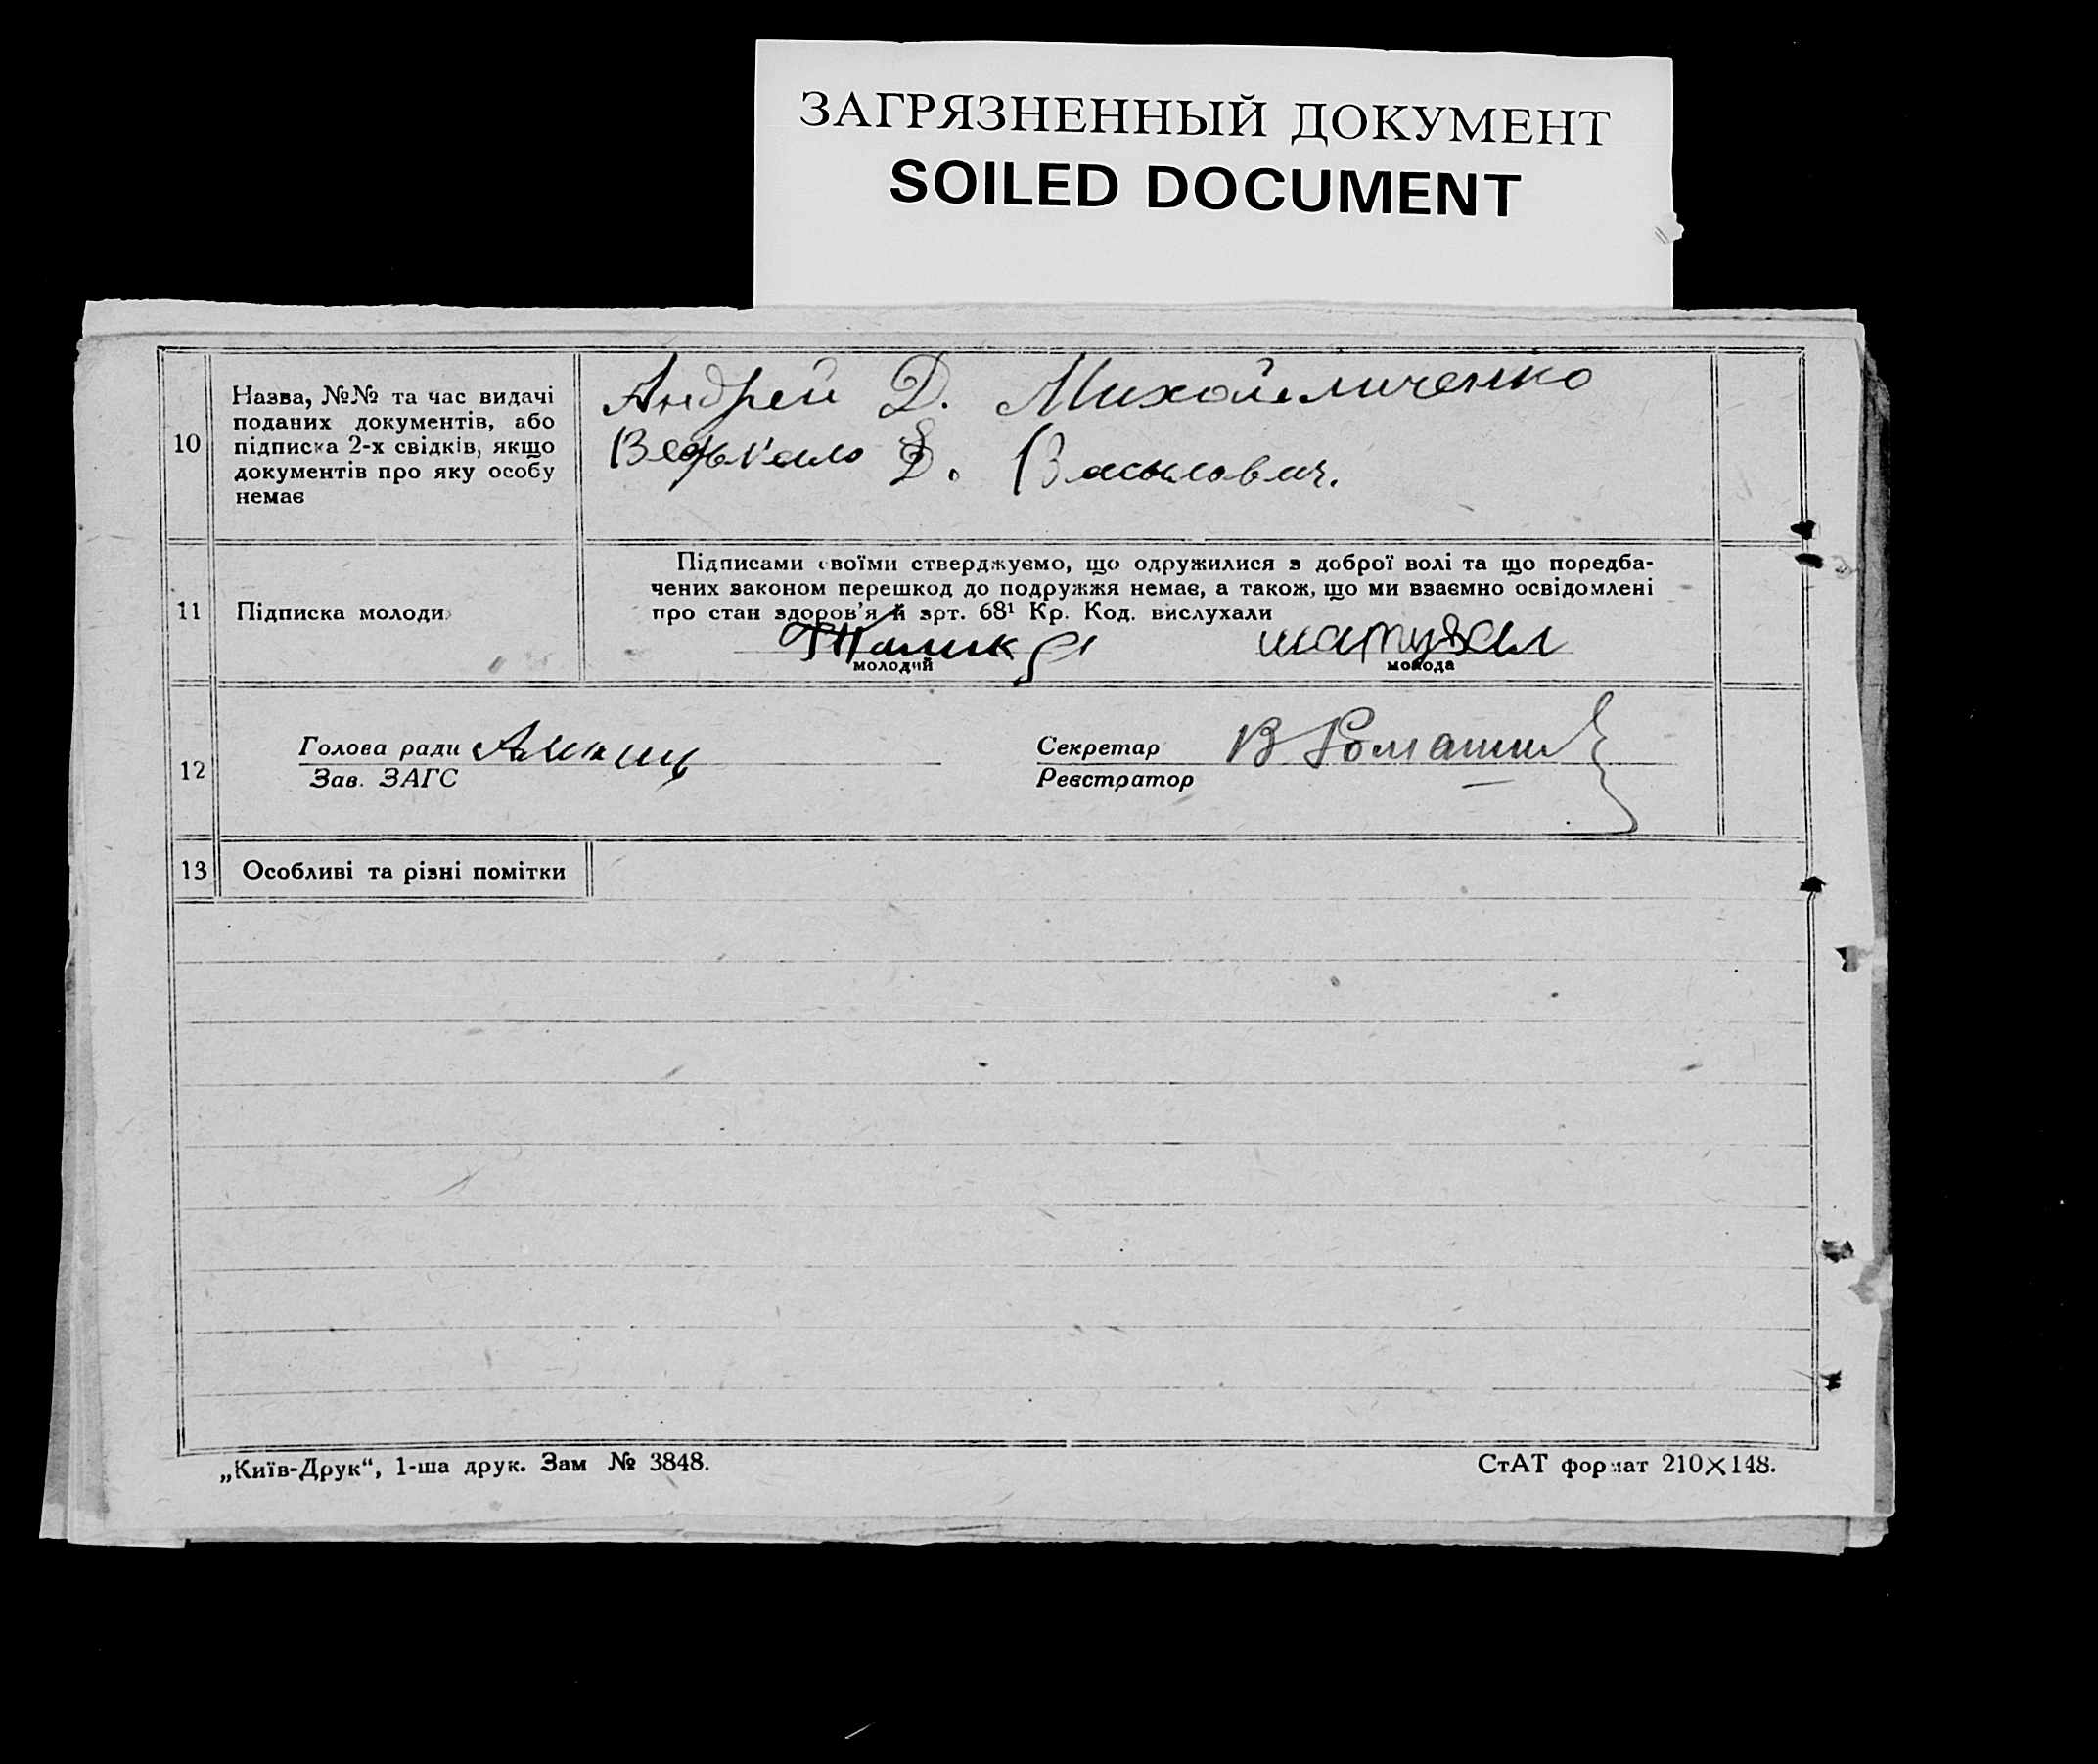 ЗАГРЯЗНЕННЫЙ ДОКУМЕНТ
SOILED DOCUMENT
10
Назва, №№ та час видачі
поданих документів, або
підписка 2-х свідків, якщо
документів про яку особу
немає
Андрей Д.
Д. Васылович.
11
Підписка молоди
Підписами своїми стверджуємо, що одружилися з доброї волі та що поредба-
чених законом перешкод до подружжя немає, а також, що ми взаємно освідомлені
про стан здоров'я й арт. 68¹ Кр. Код. вислухали
молодий
молода
12
Голова ради
Зав. ЗАГС
Секретар
Реєстратор
13
Особливі та різні помітки
„Київ-Друк“, 1-ша друк. Зам № 3848.
СтАТ формат 210×148.